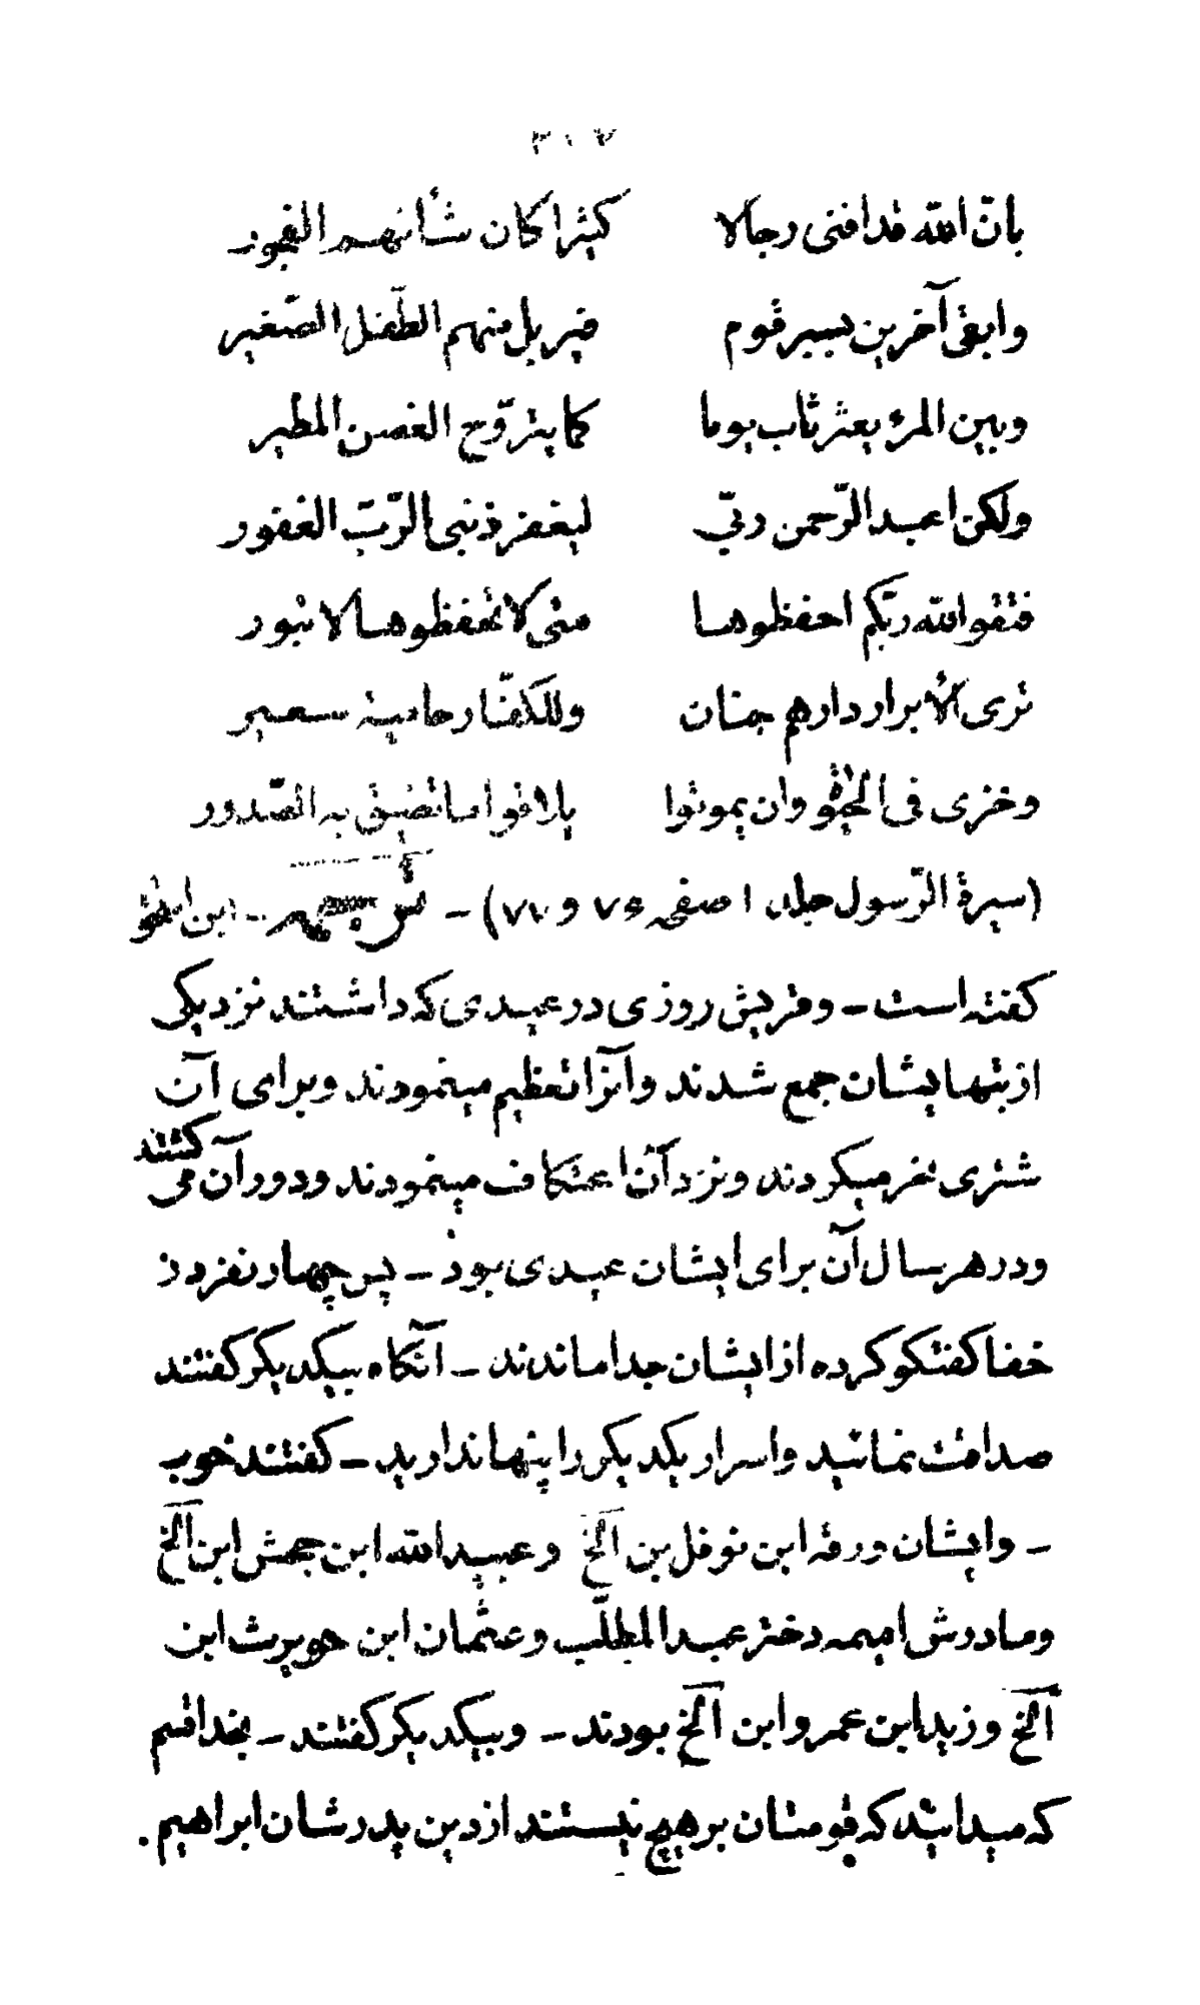 ۳۱۷
بانّ الله قد افنی رجالا کثیرا کان شأنهم الفجور
وابقی آخرین ببیر قوم فیربل منهم الطّفل الصّغیر
وبین المرء یعثر ثاب یوما کما یتروّح الغصن المطیر
ولکن اعبد الرّحمن ربّی لیغفر ذنبی الرّبّ الغفور
فتقو الله ربّکم احفظوها متی لا تحفظوها لا تبور
تری الأبرار دارهم جنان وللکفّار حامیة سعیر
وخزی فی الحیوة وان یموتوا یلاقوا ما تضیق به الصّدور
(سیرة الرّسول جلد ۱ صفحه ۷۶ و ۷۷) - - ابن اسحق
کفته است - وقریش روزی در عیدی که داشتند نزد یکی
از بتهایشان جمع شدند وآنرا تعظیم مینمودند وبرای آن
شتری نحر میکردند ونزد آن اعتکاف مینمودند ودور آن می کشتند
ودر هر سال آن برای ایشان عیدی بود - پس چهار نفر در
خفا کفتکو کرده از ایشان جدا ماندند - آنکاه بیکدیکر کفتند
صداقت نمائید واسرار یکدیکر را پنهاندارید - کفتند خوب
- وایشان ورقه ابن نوفل بن الخ وعبید الله ابن جحش ابن الخ
ومادرش امیمه دختر عبد المطلّب وعثمان ابن حویرث ابن
الخ وزید ابن عمرو ابن الخ بودند - وبیکدیکر کفتند - بخدا قسم
که میدانید که قومتان بر هیچ نیستند از دین پدرشان ابراهیم.